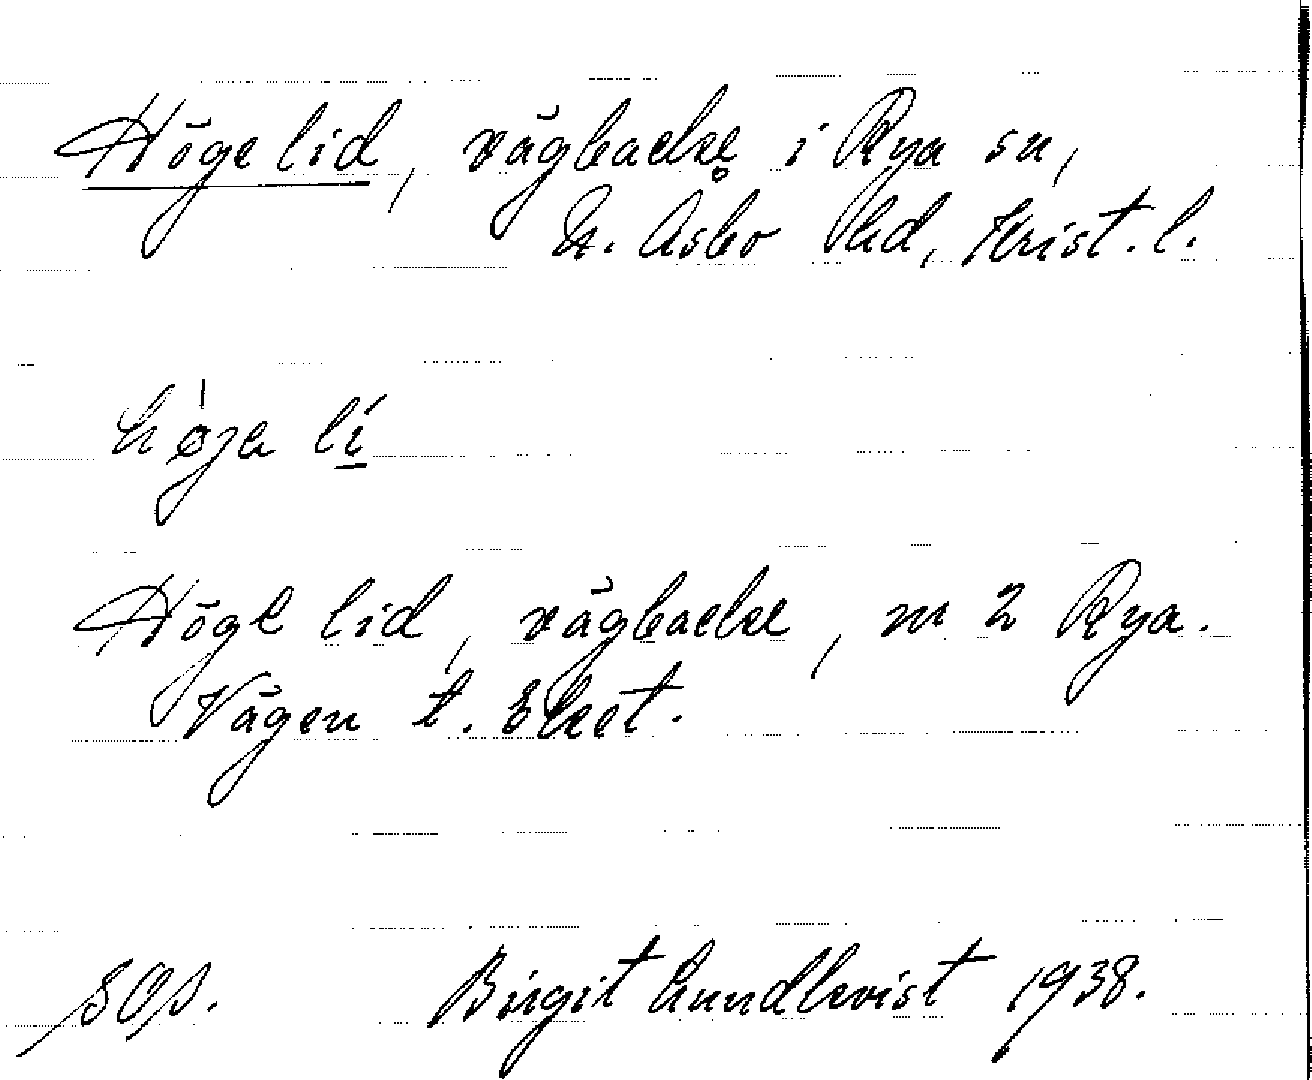 Höge lid, vägbacke i Rya sn,
N. Åsbo hd, Krist. l.
høja lí
Höge lid, vägbacke, m 2 Rya.
Vägen t. Eket.
SOS. Birgit Lundkvist 1938.